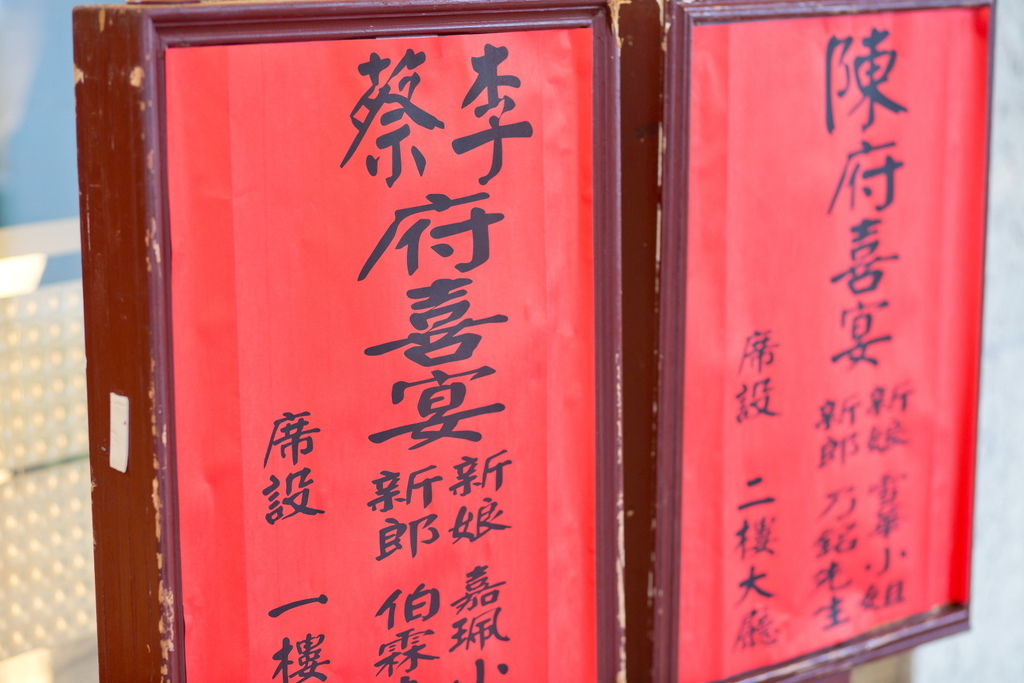 李
蔡
府喜宴
新娘 嘉珮小
新郎 伯霖
席設 一樓
陳府喜宴
新娘 雪華小姐
新郎 乃銘先生
席設 二樓大廳